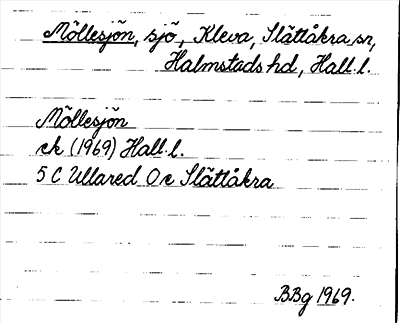 Möllesjön, sjö, Kleva, Slättåkra sn,
Halmstads hd, Hall. l.
Möllesjön
ek (1969) Hall. l.
5 C Ullared O e Slättåkra
BBg 1969.